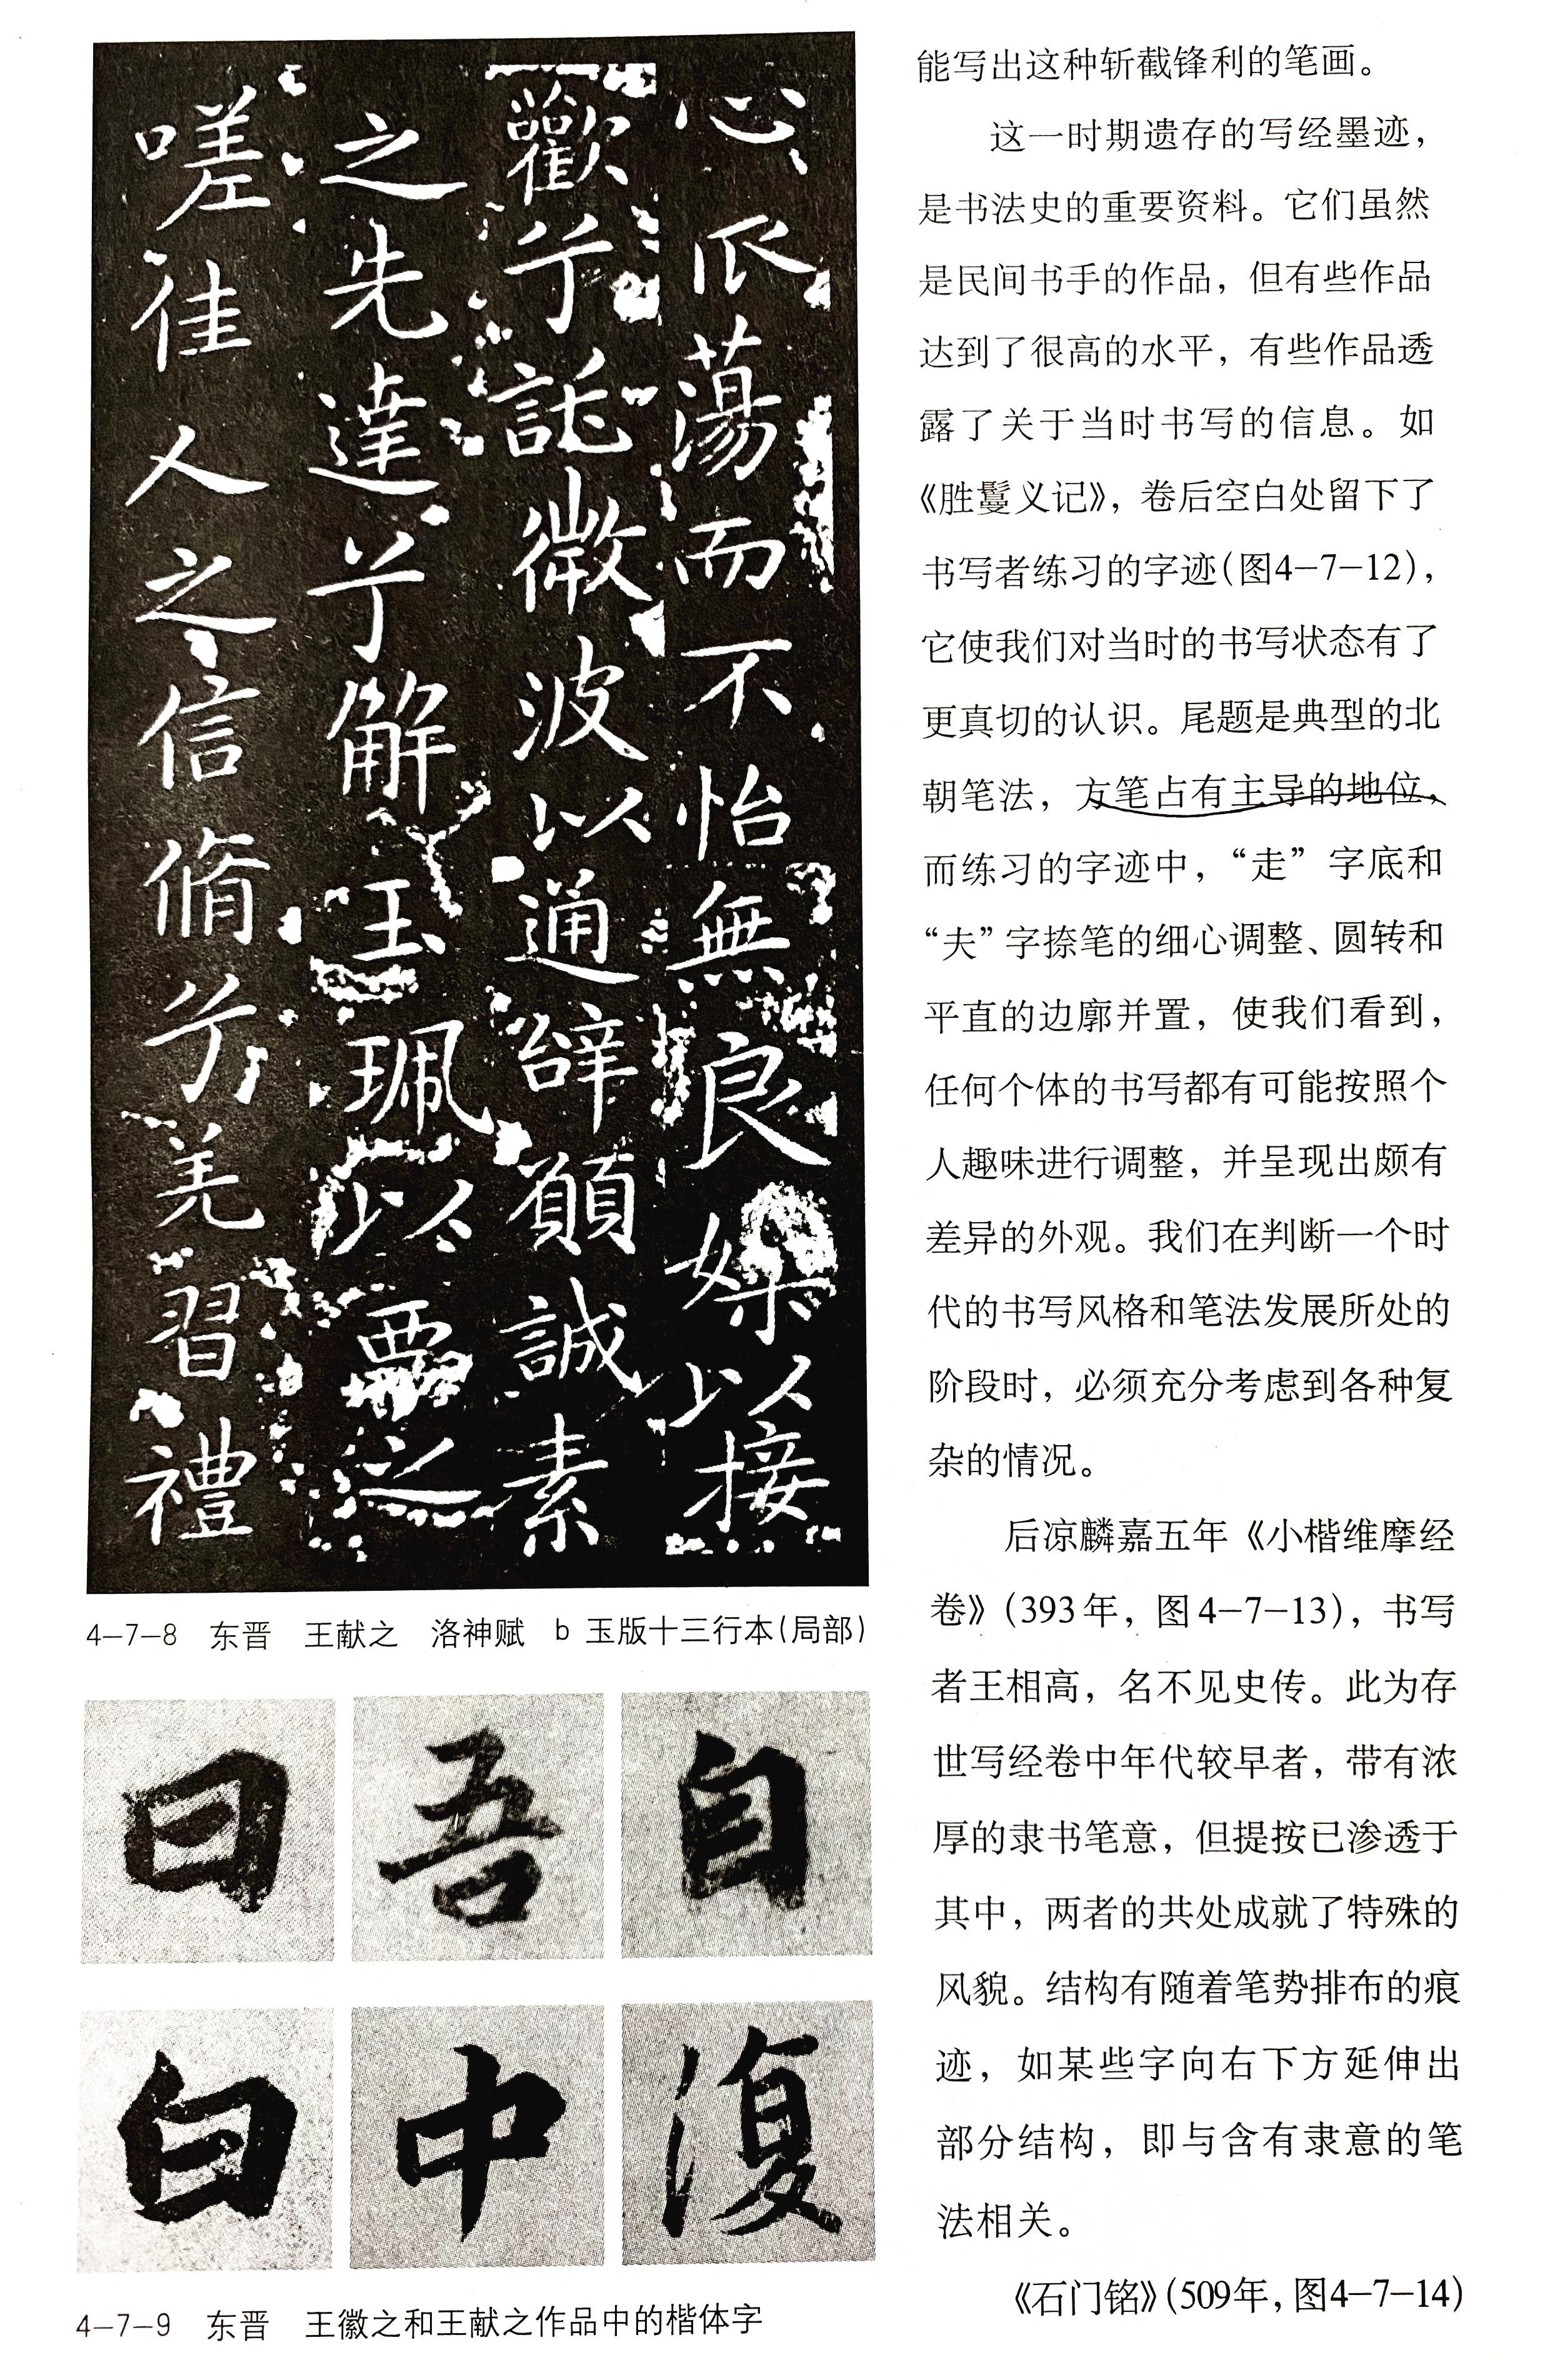 心爪蕩而不怡無良媒以接
歡兮託微波以通辭願誠素
之先達兮解玉珮以要之
嗟佳人之信脩兮羌習禮
4-7-8 东晋 王献之 洛神赋 b 玉版十三行本(局部)
自
吾
曰
復
中
白
4-7-9 东晋 王徽之和王献之作品中的楷体字
能写出这种斩截锋利的笔画。
这一时期遗存的写经墨迹，
是书法史的重要资料。它们虽然
是民间书手的作品，但有些作品
达到了很高的水平，有些作品透
露了关于当时书写的信息。如
《胜鬘义记》，卷后空白处留下了
书写者练习的字迹(图4-7-12)，
它使我们对当时的书写状态有了
更真切的认识。尾题是典型的北
朝笔法，方笔占有主导的地位，
而练习的字迹中，“走”字底和
“夫”字捺笔的细心调整、圆转和
平直的边廓并置，使我们看到，
任何个体的书写都有可能按照个
人趣味进行调整，并呈现出颇有
差异的外观。我们在判断一个时
代的书写风格和笔法发展所处的
阶段时，必须充分考虑到各种复
杂的情况。
后凉麟嘉五年《小楷维摩经
卷》(393年，图4-7-13)，书写
者王相高，名不见史传。此为存
世写经卷中年代较早者，带有浓
厚的隶书笔意，但提按已渗透于
其中，两者的共处成就了特殊的
风貌。结构有随着笔势排布的痕
迹，如某些字向右下方延伸出
部分结构，即与含有隶意的笔
法相关。
《石门铭》(509年，图4-7-14)